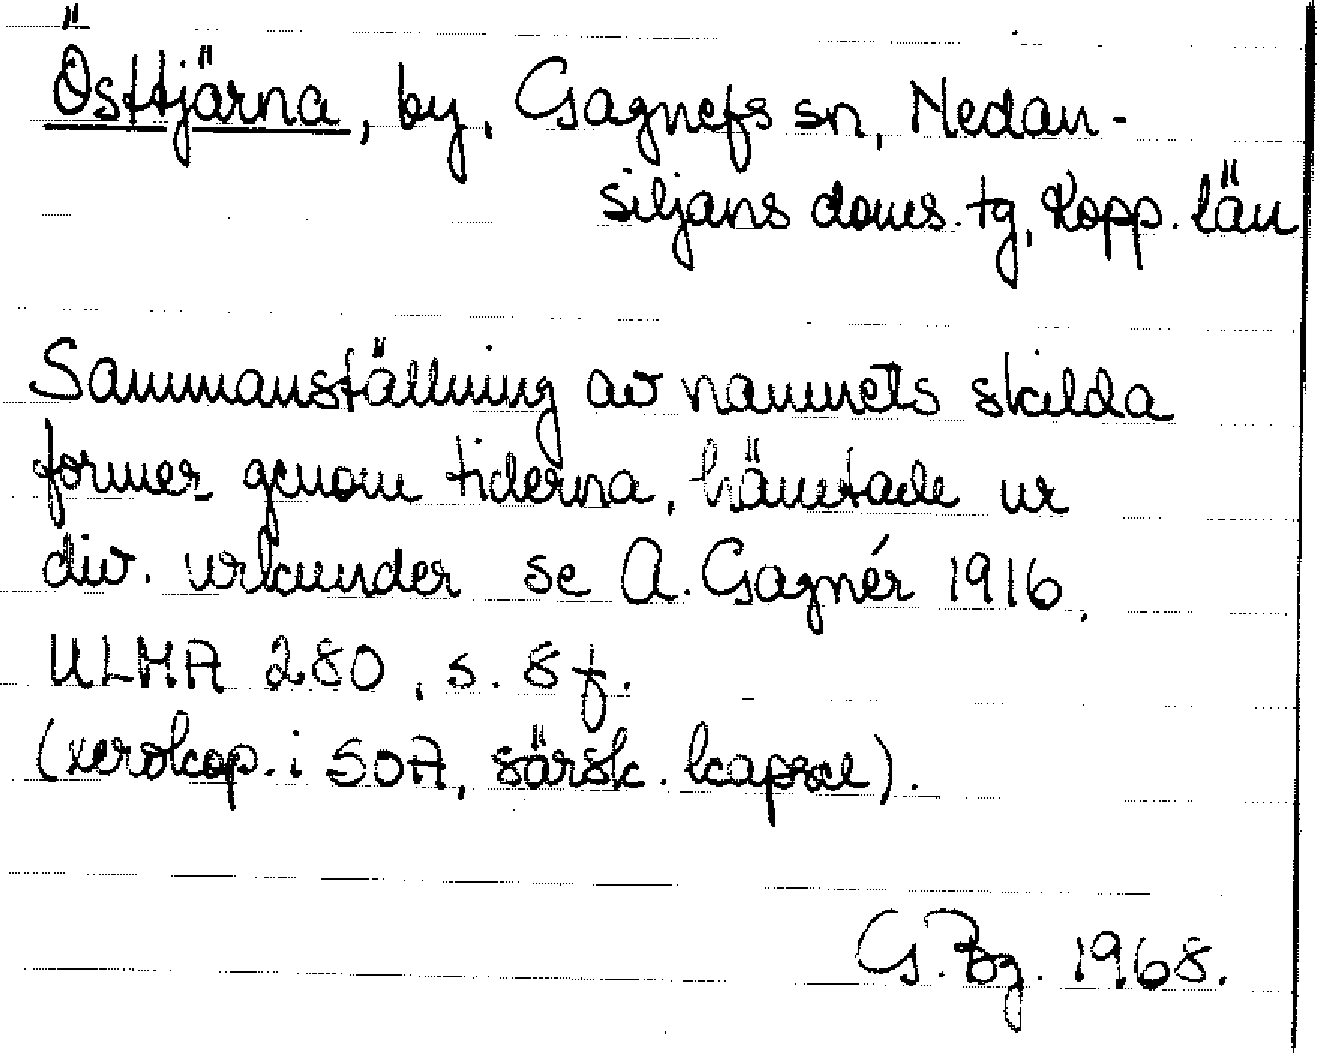 Östtjärna, by, Gagnefs sn, Nedan-
siljans doms. tg, Kopp. län
Sammanställning av namnets skilda
former genom tiderna, hämtade ur
div. urkunder se A. Gagnér 1916,
ULMA 280, s. 8 f.
(xerokop. i SOA, särsk. kapsel).
G. Bg. 1968.